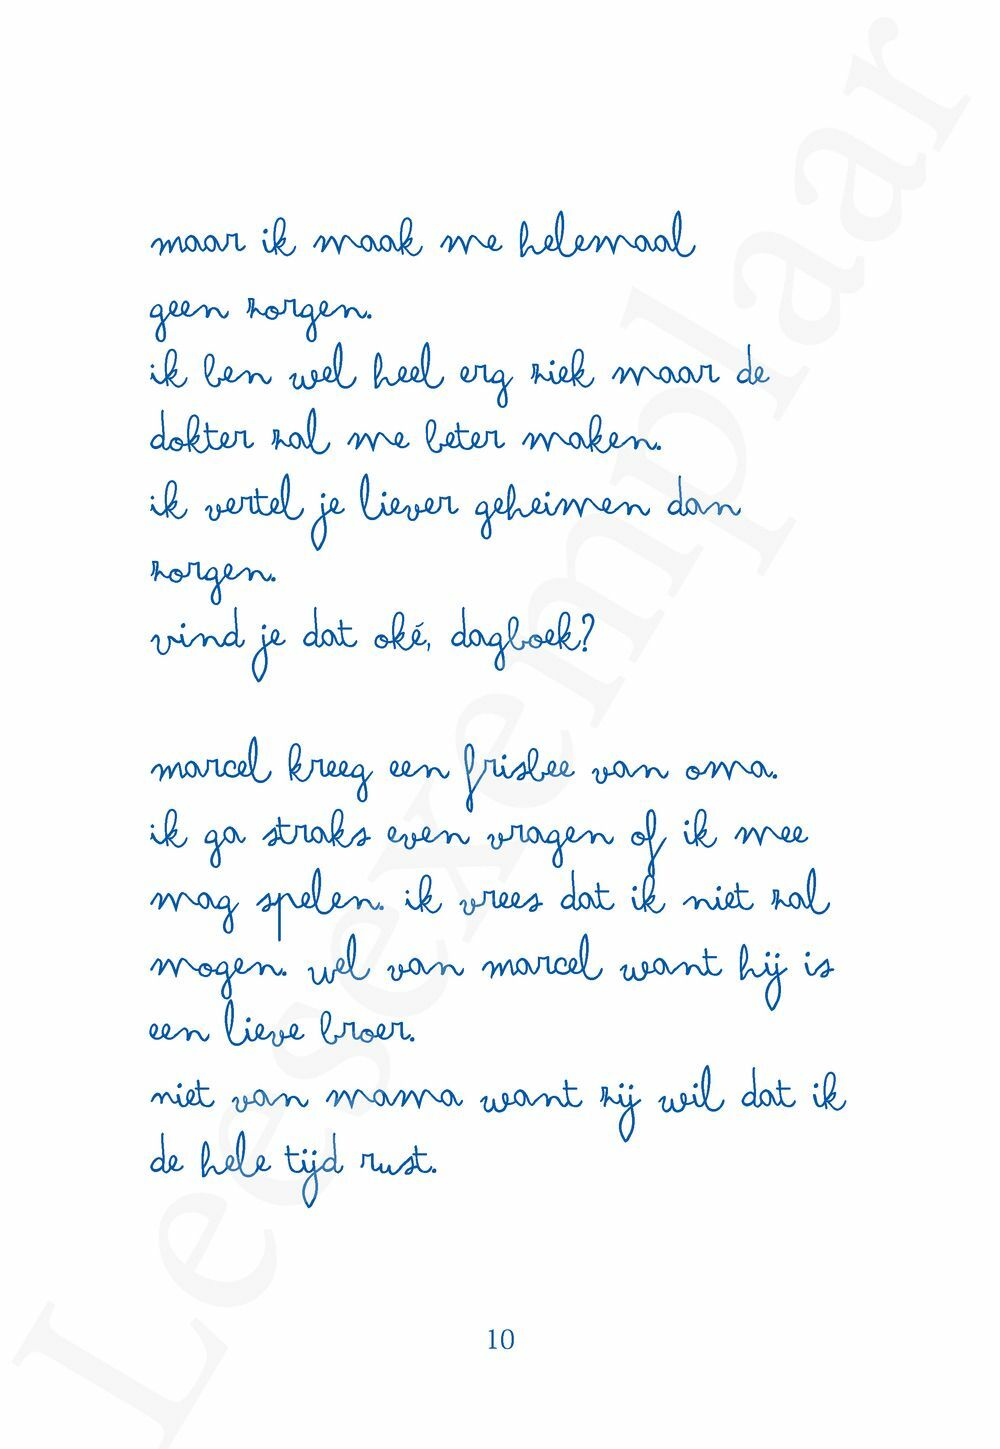 maar ik maak me helemaal
geen zorgen.
ik ben wel heel erg ziek maar de
dokter zal me beter maken.
ik vertel je liever geheimen dan
zorgen.
vind je dat oké, dagboek?
marcel kreeg een frisbee van oma.
ik ga straks even vragen of ik mee
mag spelen. ik vrees dat ik niet zal
mogen. wel van marcel want hij is
een lieve broer.
niet van mama want zij wil dat ik
de hele tijd rust.
10
Leesexemplaar